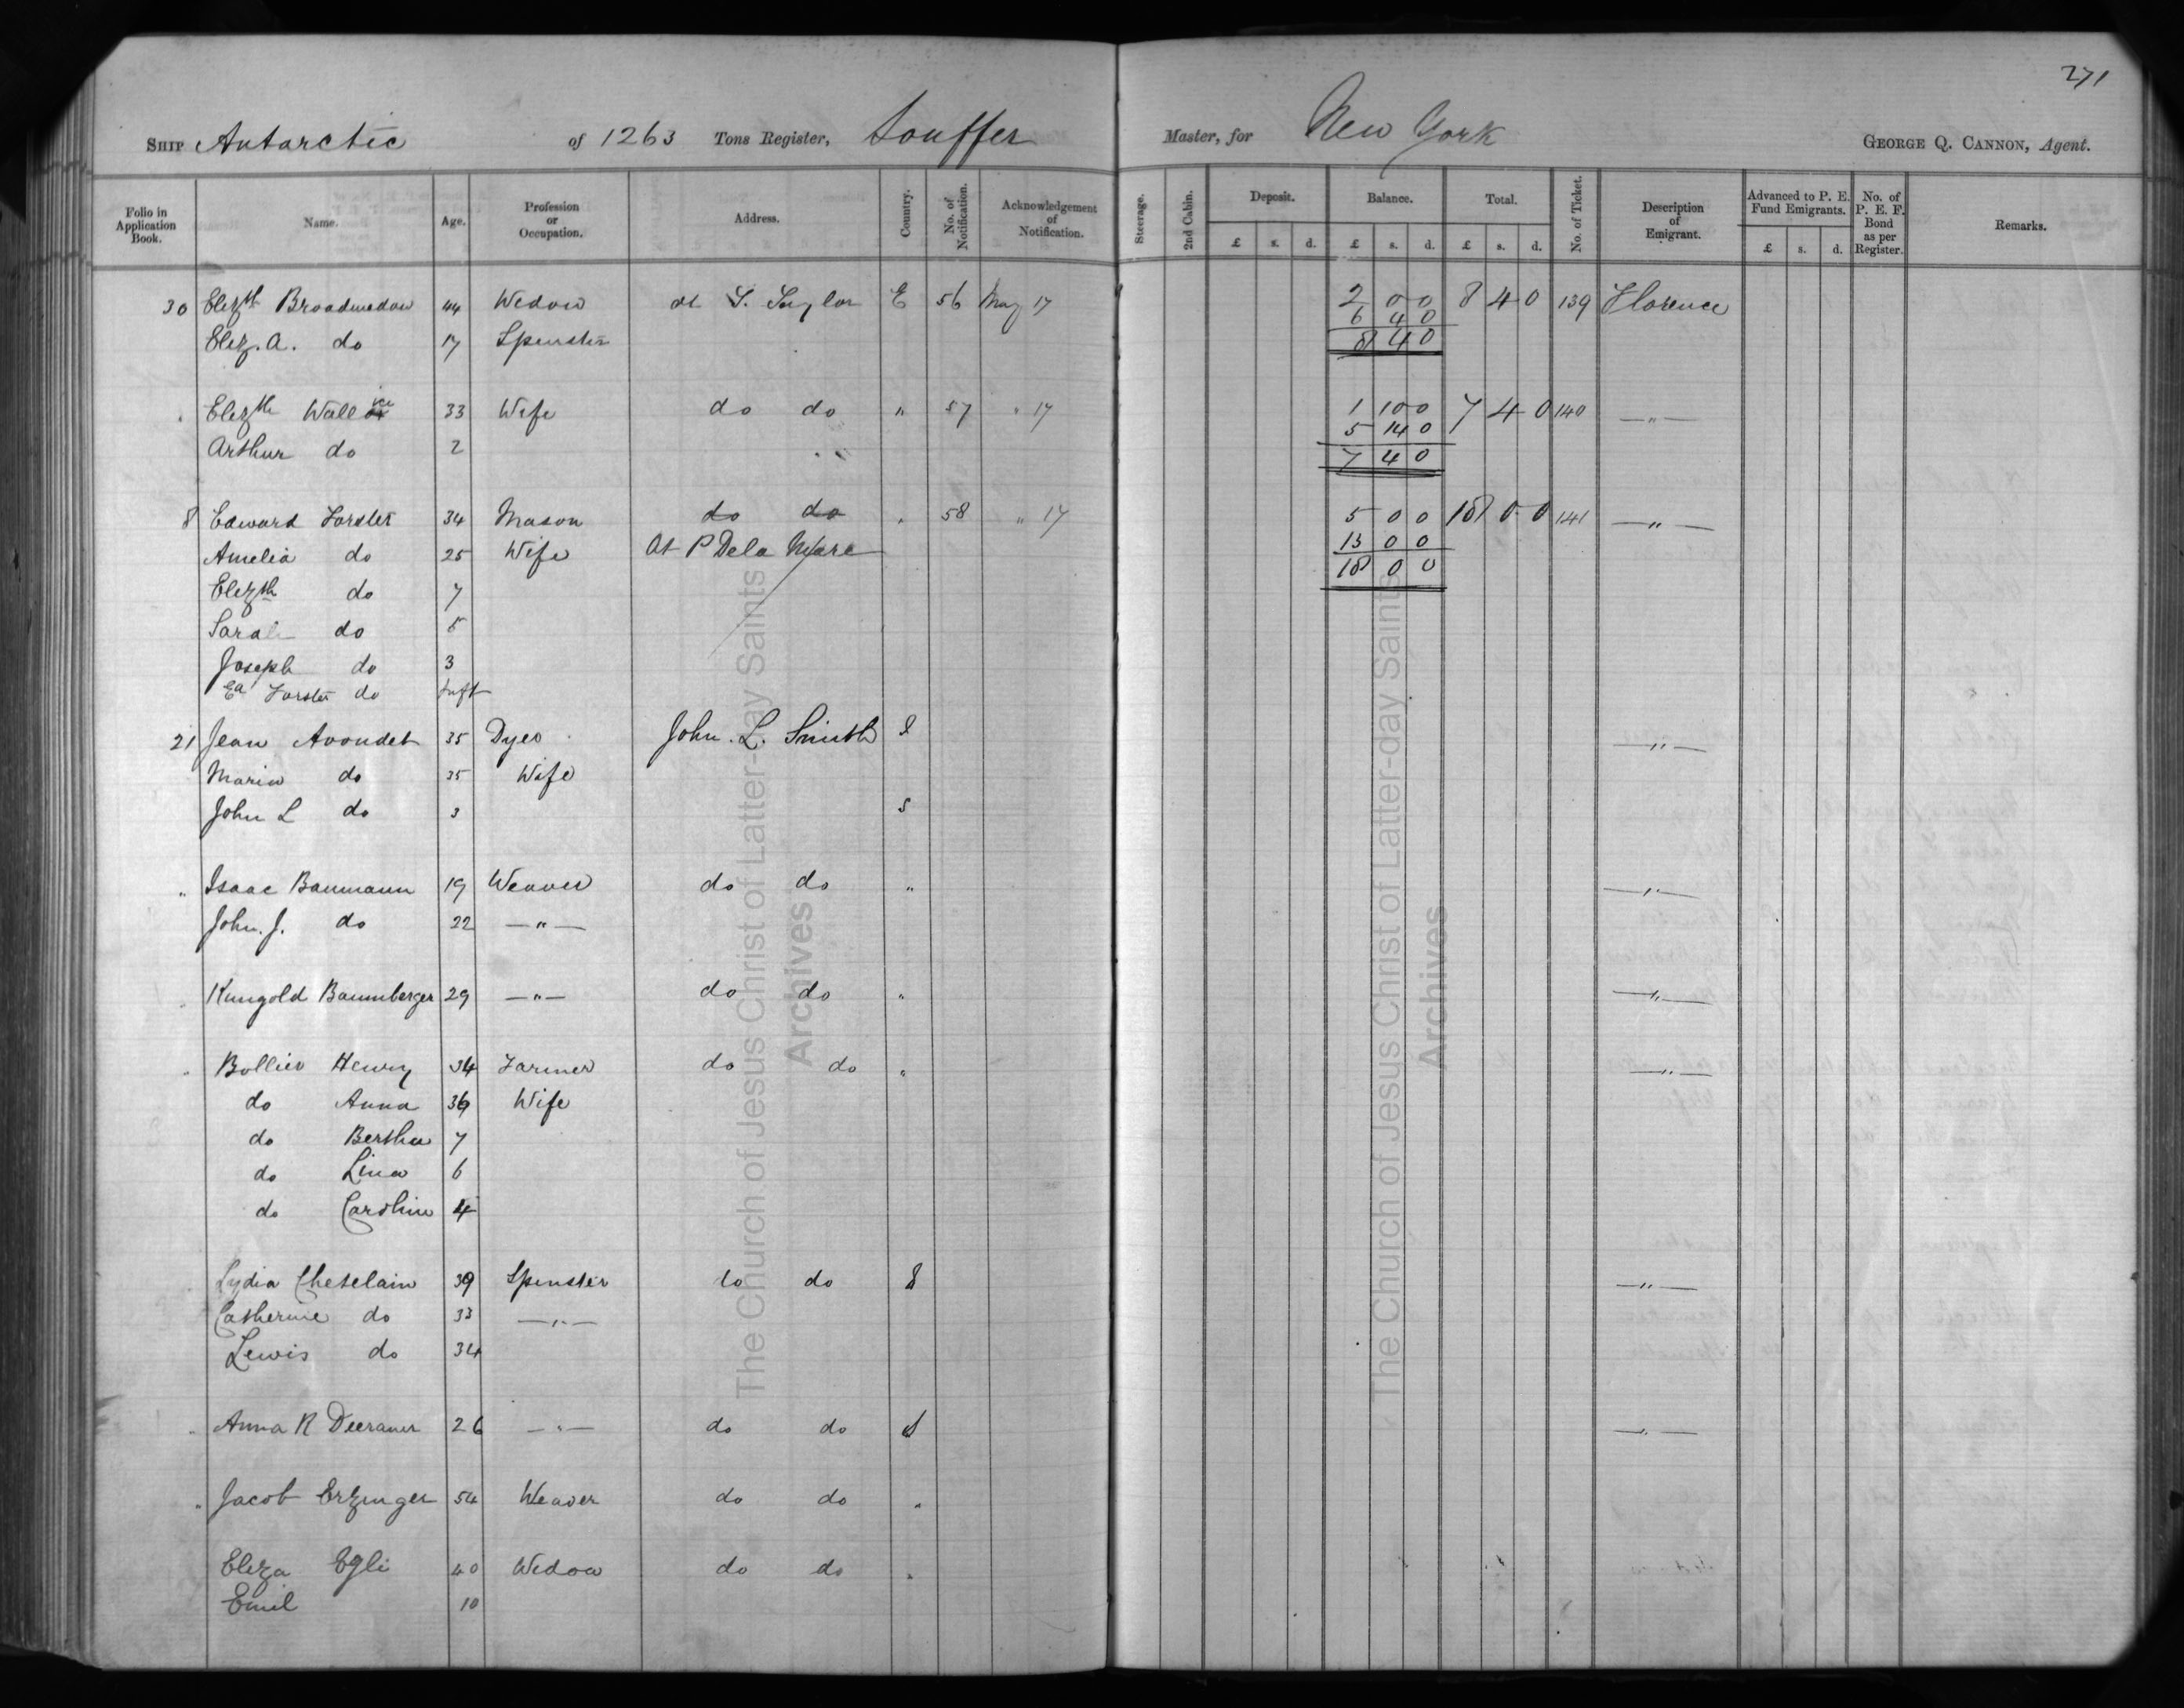 271
SHIP Antarctic of 1263 Tons Register, Souffer Master, for New York GEORGE Q. CANNON, Agent.
Folio in Application Book. Name. Age. Profession or Occupation. Address. Country. No. of Notification. Acknowledgement of Notification. Steerage. 2nd Cabin. Deposit. Balance. Total. No. of Ticket. Description of Emigrant. Advanced to P. E. Fund Emigrants. No. of P. E. F. Bond as per Register. Remarks.
£ s. d. £ s. d. £ s. d. £ s. d.
30 Elizth Broadmedow 44 Widow at T. Taylor E 56 May 17 2 0 0 8 4 0 139 Florence
6 4 0
Eliz. A. do 17 Spinster 8 4 0
" Elizth Wallice 33 Wife do do " 57 " 17 1 10 0 7 4 0 140 — " —
5 14 0
Arthur do 2 7 4 0
8 Edward Forster 34 Mason do do " 58 " 17 5 0 0 18 0 0 141 — " —
Amelia do 25 Wife At P Dela Mare 13 0 0
Elizth do 7 18 0 0
Sarah do 5
Joseph do 3
Ed Forster do Inft
21 Jean Avondet 35 Dyer John. L. Smith S — " —
Maria do 35 Wife
John L do 3 S
" Isaac Baumann 19 Weaver do do " — " —
John. J. do 22 — " —
" Kungold Baumberger 29 — " — do do " — " —
" Bollier Henry 34 Farmer do do " — " —
do Anna 36 Wife
do Bertha 7
do Lina 6
do Carolin 4
Lydia Chatelain 39 Spinster do do S — " —
Catherine do 33 — " —
Lewis do 34
" Anna R Deeraner 26 — " — do do S — " —
" Jacob Erzinger 54 Weaver do do "
Eliza Egli 40 Widow do do "
Emil 10
The Church of Jesus Christ of Latter-day Saints
Archives
The Church of Jesus Christ of Latter-day Saints
Archives